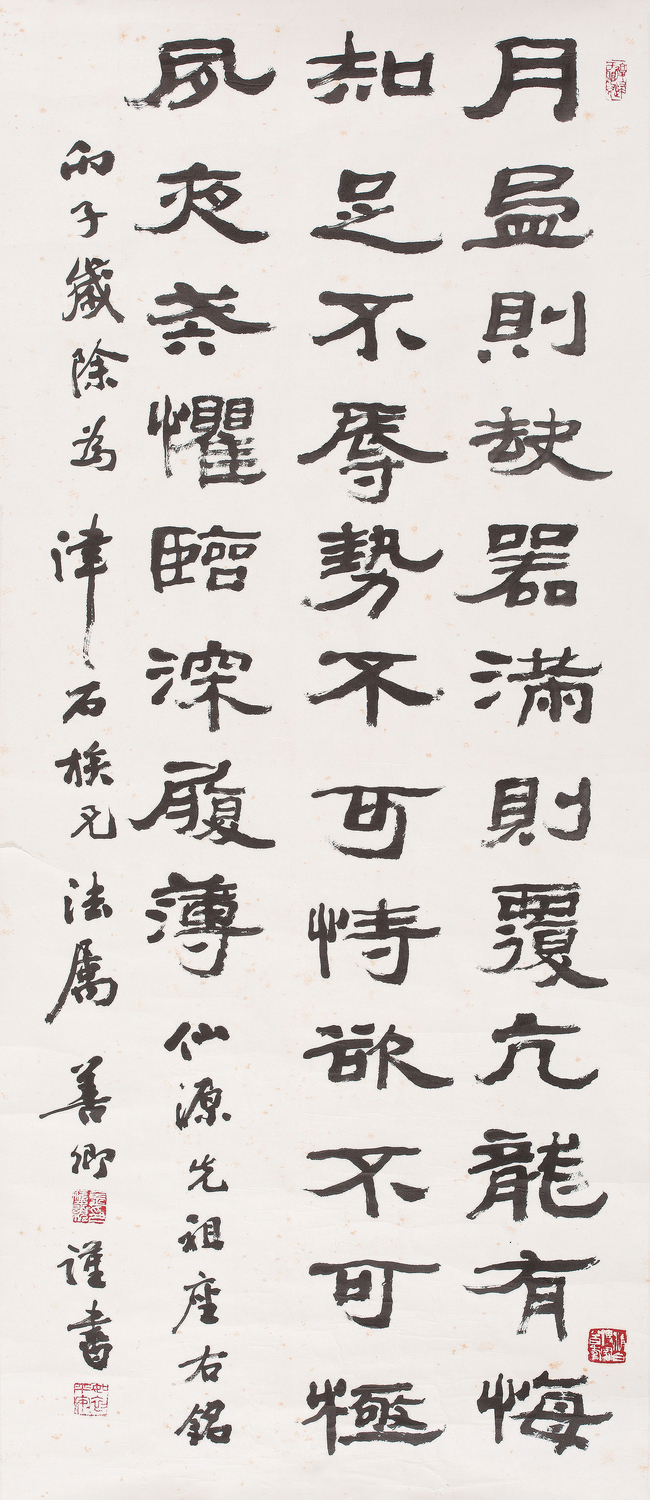 月盈則缺器滿則覆亢龍有悔
知足不辱勢不可恃欲不可極
夙夜恭懼臨深履薄仙源先祖座右銘
丙子歲除為津石族兄法属善卿謹書